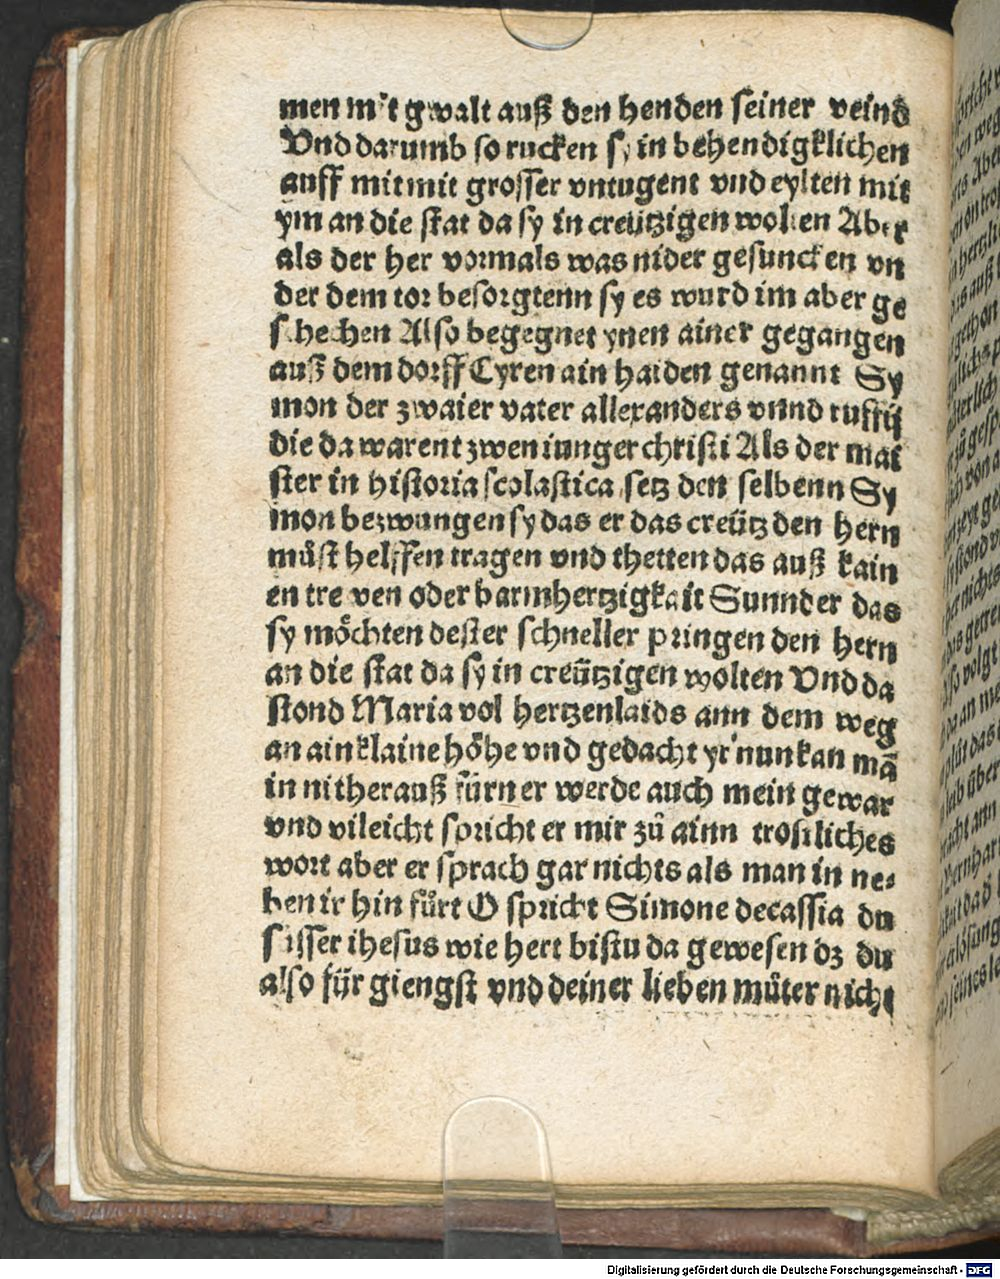 men mit gwalt auß den henden seiner veind
Vnd darumb so rucken sy in behendigklichen
auff mitmit grosser vntugent vnd eylten mit
ym an die stat da sy in creützigen wolten Aber
als der her vormals was nider gesuncken vn
der dem tor besorgtenn sy es wurd im aber ge
schechen Also begegnet ynen ainer gegangen
auß dem dorff Cyren ain haiden genannt Sy
mon der zwaier vater allexanders vnnd ruffij
die da warent zwen iunger christi Als der mai
ster in historia scolastica setz den selbenn Sy
mon bezwungen sy das er das creütz den hern
můst helffen tragen vnd thetten das auß kain
en trewen oder barmhertzigkait Sunnder das
sy möchten dester schneller pringen den hern
an die stat da sy in creützigen wolten Vnd da
stond Maria vol hertzenlaids ann dem weg
an ain klaine höhe vnd gedacht yr nun kan mā
in nit herauß fürn er werde auch mein gewar
vnd vileicht spricht er mir zů ainn trostliches
wort aber er sprach gar nichts als man in ne⸗
ben ir hin fůrt O spricht Simone de cassia du
süsser ihesus wie hert bistu da gewesen dz du
also für giengst vnd deiner lieben můter nicht
Digitalisierung gefördert durch die Deutsche Forschungsgemeinschaft - DFG